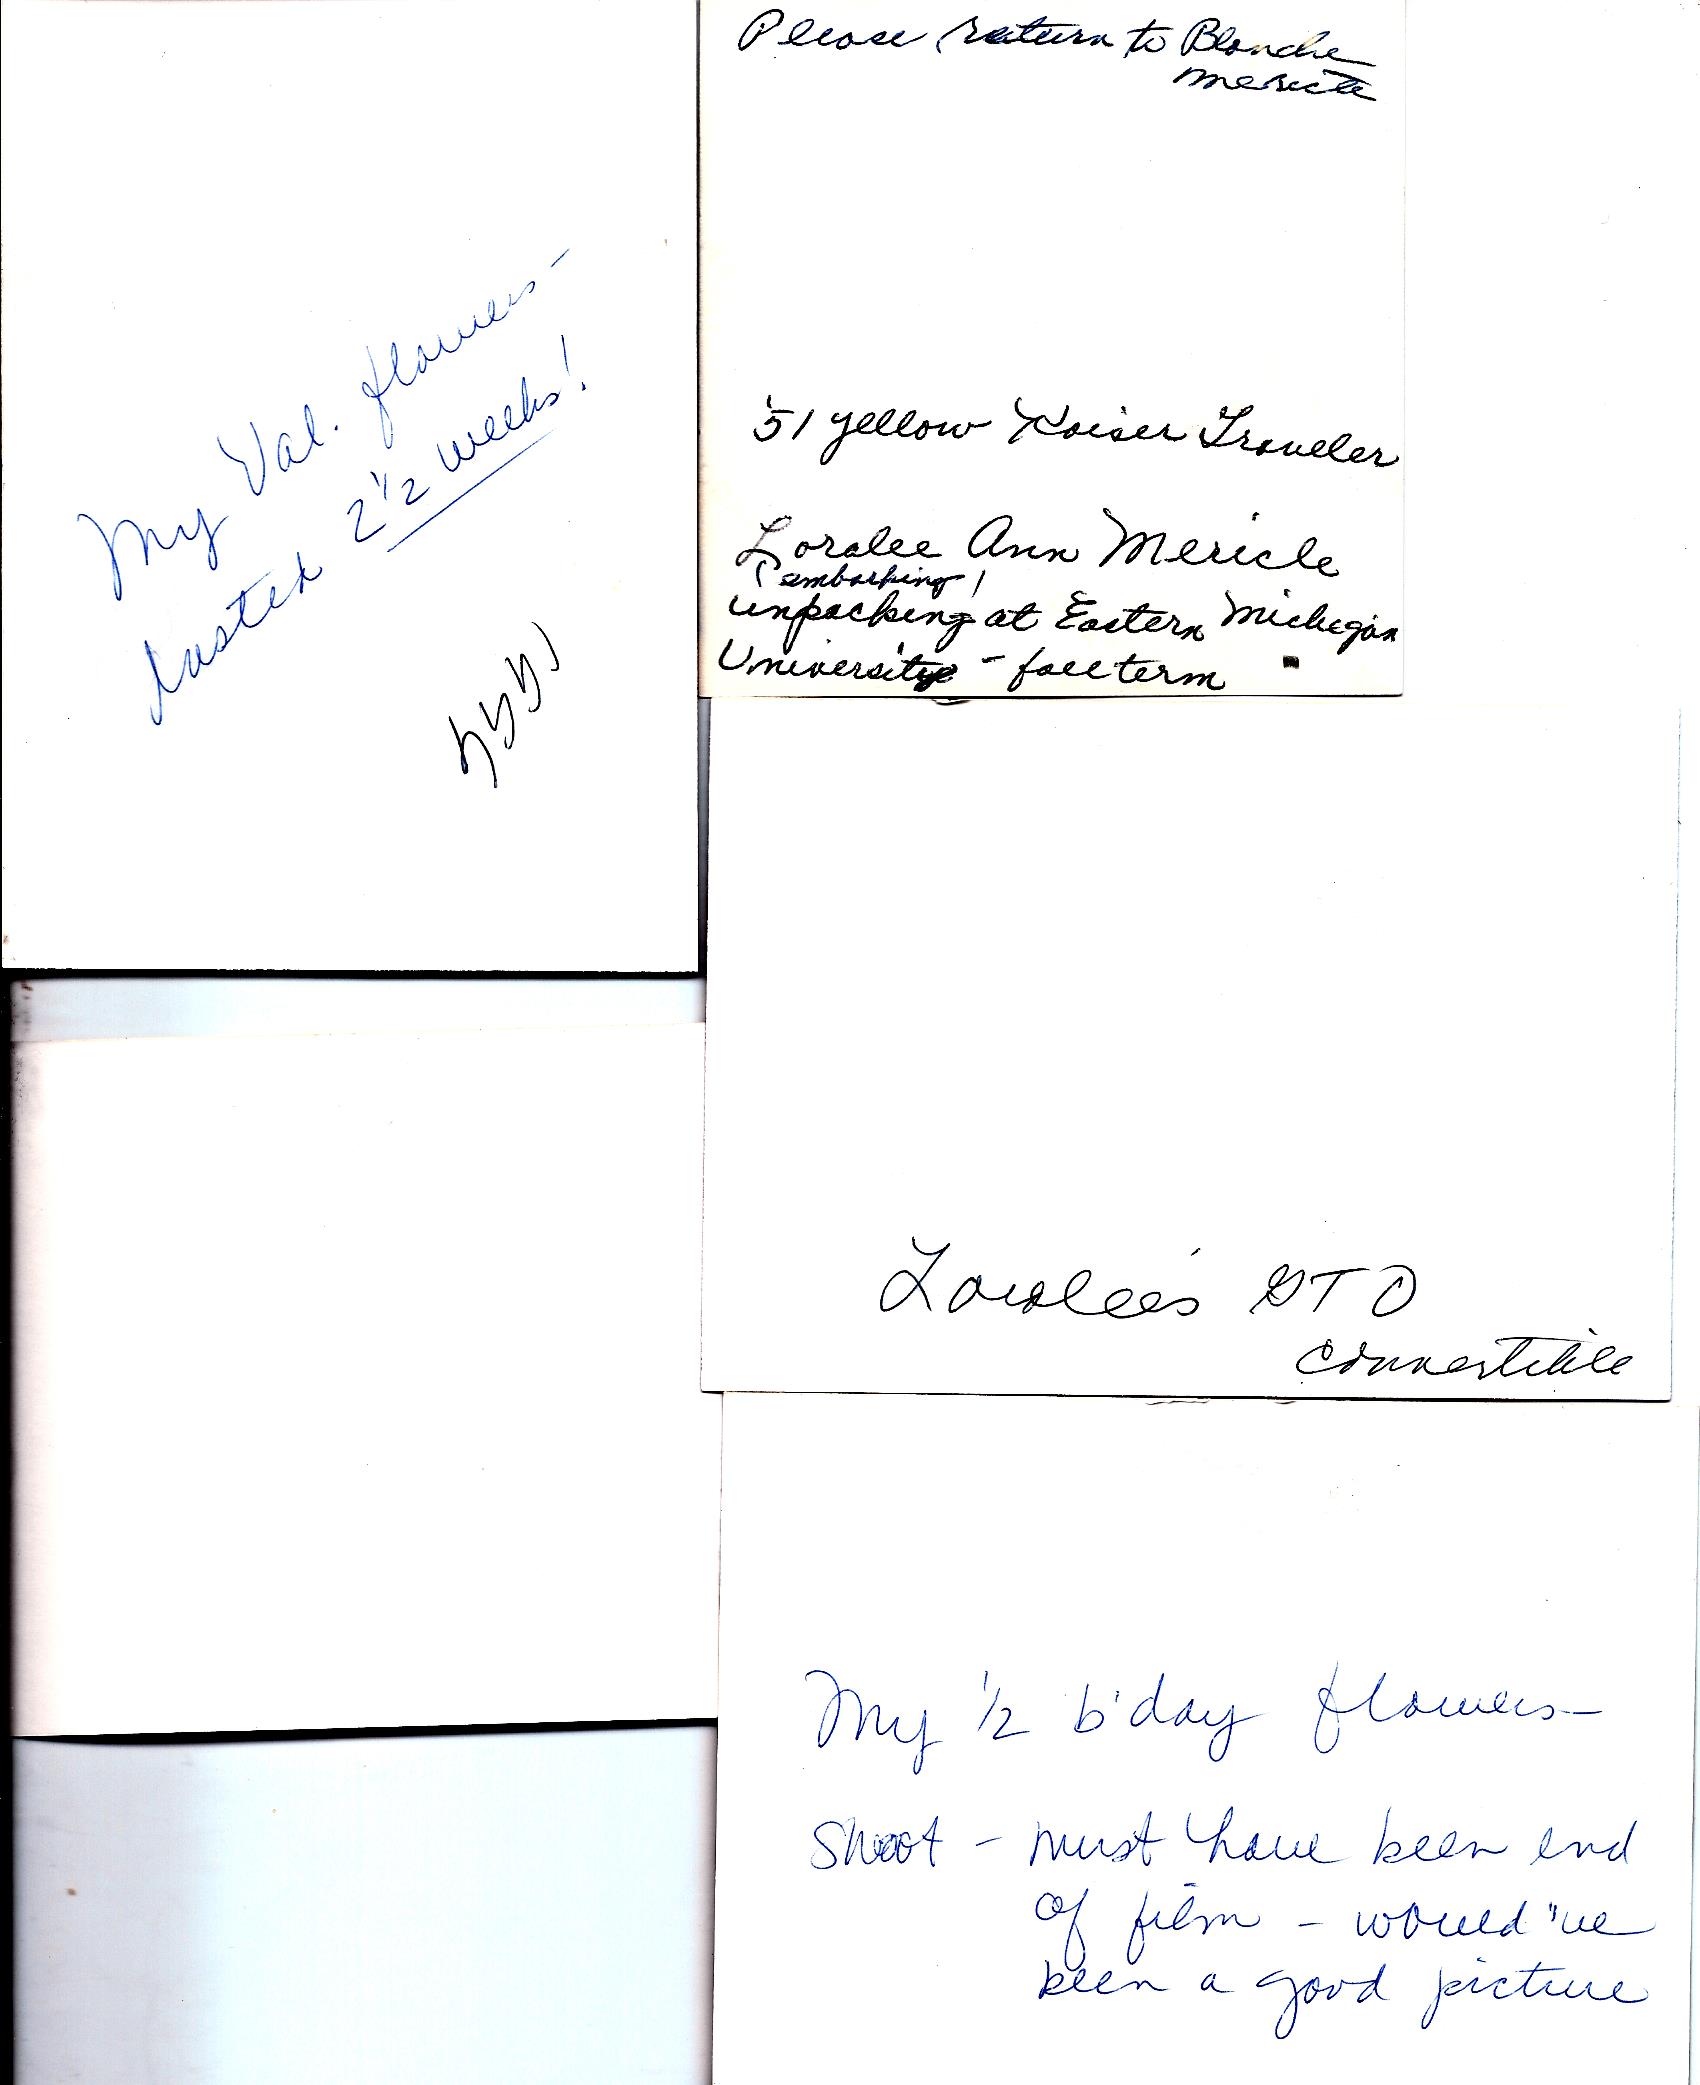 My Val. flowers -
lasted 2 1/2 weeks!
Please return to Blanche
Mericle
'51 yellow Kaiser Traveler
Loralee Ann Mericle
(embarking)
unpacking at Eastern Michigan
University - fall term
Loralee's GTO
convertible
My 1/2 b'day flowers -
Shoot - must have been end
of film - would've
been a good picture